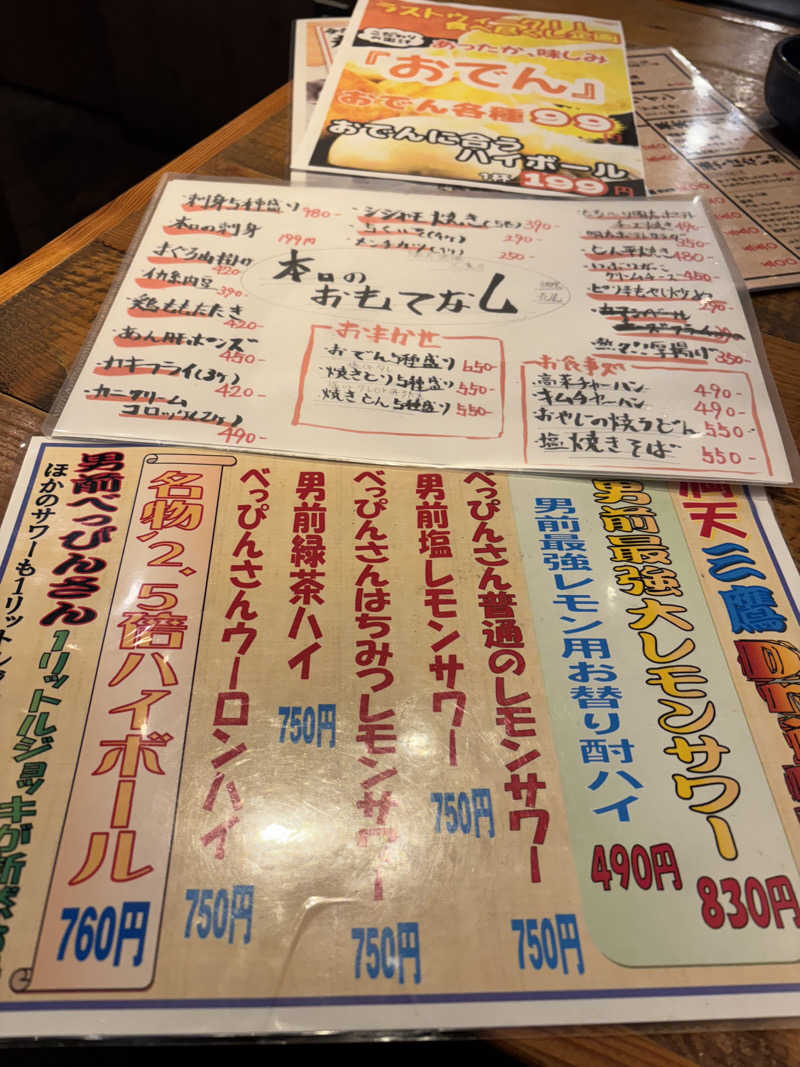 ラストウィークリー
食べ尽くし企画
こだわり
お出汁
あったか味しみ
『おでん』
おでん各種99円
おでんに合う
ハイボール
1杯199円
本日の
おもてなし
・刺身5種盛り 980-
・本日の刺身 199円
・まぐろ山掛け 420-
・イカ糸内豆 390-
・鶏ももたたき 420-
・あん肝ポンズ 450-
・カキフライ(3ケ) 420-
・カニクリーム
コロッケ(2ケ) 490-
・シシャモ焼き(5本) 390-
290-
・メンチカツ(1ケ) 250-
チーズ焼き
350-
・とん平焼き 480-
・いぶりガッコ
クリームチーズ 450-
・ピリ辛もやし炒め 290-
350-
おまかせ
・おでん5種盛り 650-
・焼きとり5種盛り 550-
・焼きとん5種盛り 550-
お食事処
高菜チャーハン 490-
キムチャーハン 490-
おやじの焼うどん 550-
塩焼きそば 550-
満天
三鷹
男前最強大レモンサワー
830円
男前最強レモン用お替り酎ハイ
490円
べっぴんさん普通のレモンサワー
750円
男前塩レモンサワー
750円
べっぴんさんはちみつレモンサワー
750円
男前緑茶ハイ
750円
べっぴんさんウーロンハイ
750円
名物'2.5倍ハイボール
760円
男前べっぴんさん
1リットルジョッキが新燃
ほかのサワーも1リットル